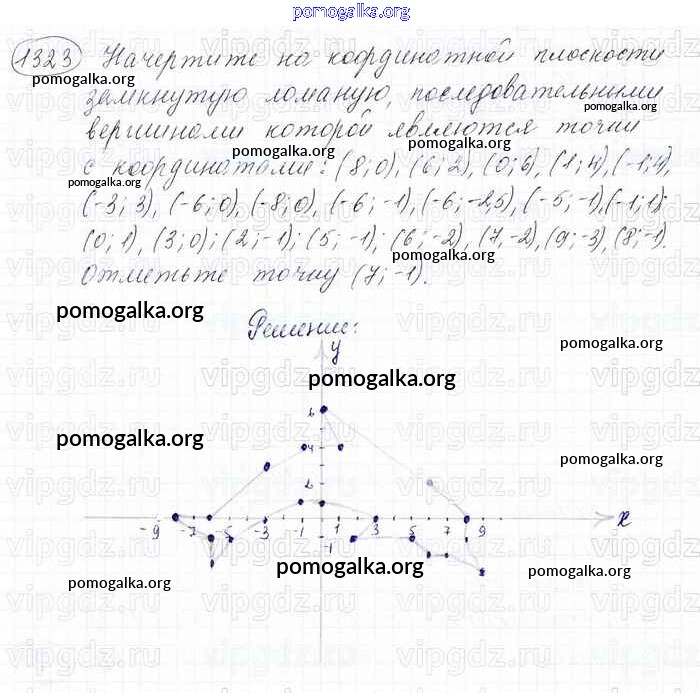 pomogalka.org
1323 Начертите на координатной плоскости
замкнутую ломаную, последовательными
вершинами которой являются точки
с координатами: (8; 0), (6; 2), (0; 6), (1; 4), (-1; 4),
(-3; 3), (-6; 0), (-8; 0), (-6; -1), (-6; -2,5), (-5; -1), (-1; 1);
(0; 1), (3; 0); (2; -1); (5; -1); (6; -2), (7, -2), (9; -3), (8; -1).
Отметьте точку (7; -1).
Решение:
y
6
4
2
-9 -7 -5 -3 -1 1 3 5 7 9 x
-1
pomogalka.org
pomogalka.org
pomogalka.org
pomogalka.org
pomogalka.org
pomogalka.org
pomogalka.org
pomogalka.org
pomogalka.org
pomogalka.org
pomogalka.org
pomogalka.org
pomogalka.org
vipgdz.ru